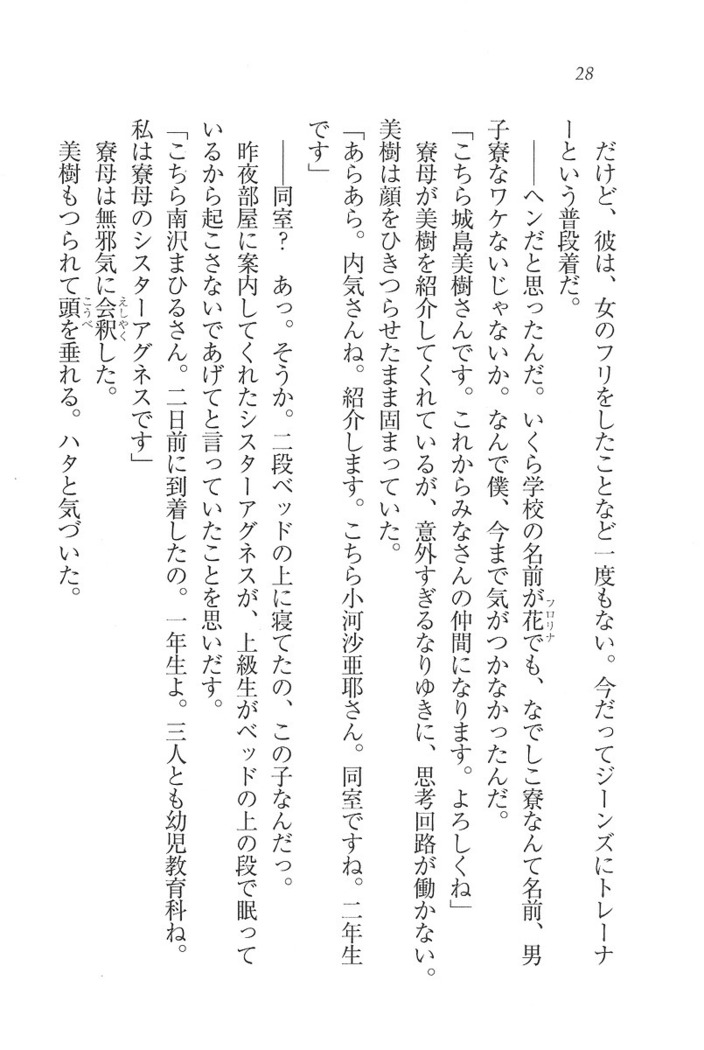 28
だけど、彼は、女のフリをしたことなど一度もない。今だってジーンズにトレーナ
ーという普段着だ。
――ヘンだと思ったんだ。いくら学校の名前が花でも、なでしこ寮なんて名前、男
フロリナ
子寮なワケないじゃないか。なんで僕、今まで気がつかなかったんだ。
「こちら城島美樹さんです。これからみなさんの仲間になります。よろしくね」
寮母が美樹を紹介してくれているが、意外すぎるなりゆきに、思考回路が働かない。
美樹は顔をひきつらせたまま固まっていた。
「あらあら。内気さんね。紹介します。こちら小河沙亜耶さん。同室ですね。二年生
です」
――同室？　あっ。そうか。二段ベッドの上に寝てたの、この子なんだっ。
昨夜部屋に案内してくれたシスターアグネスが、上級生がベッドの上の段で眠って
いるから起こさないであげてと言っていたことを思いだす。
「こちら南沢まひるさん。二日前に到着したの。一年生よ。三人とも幼児教育科ね。
私は寮母のシスターアグネスです」
寮母は無邪気に会釈した。
えしゃく
美樹もつられて頭を垂れる。ハタと気づいた。
こうべ